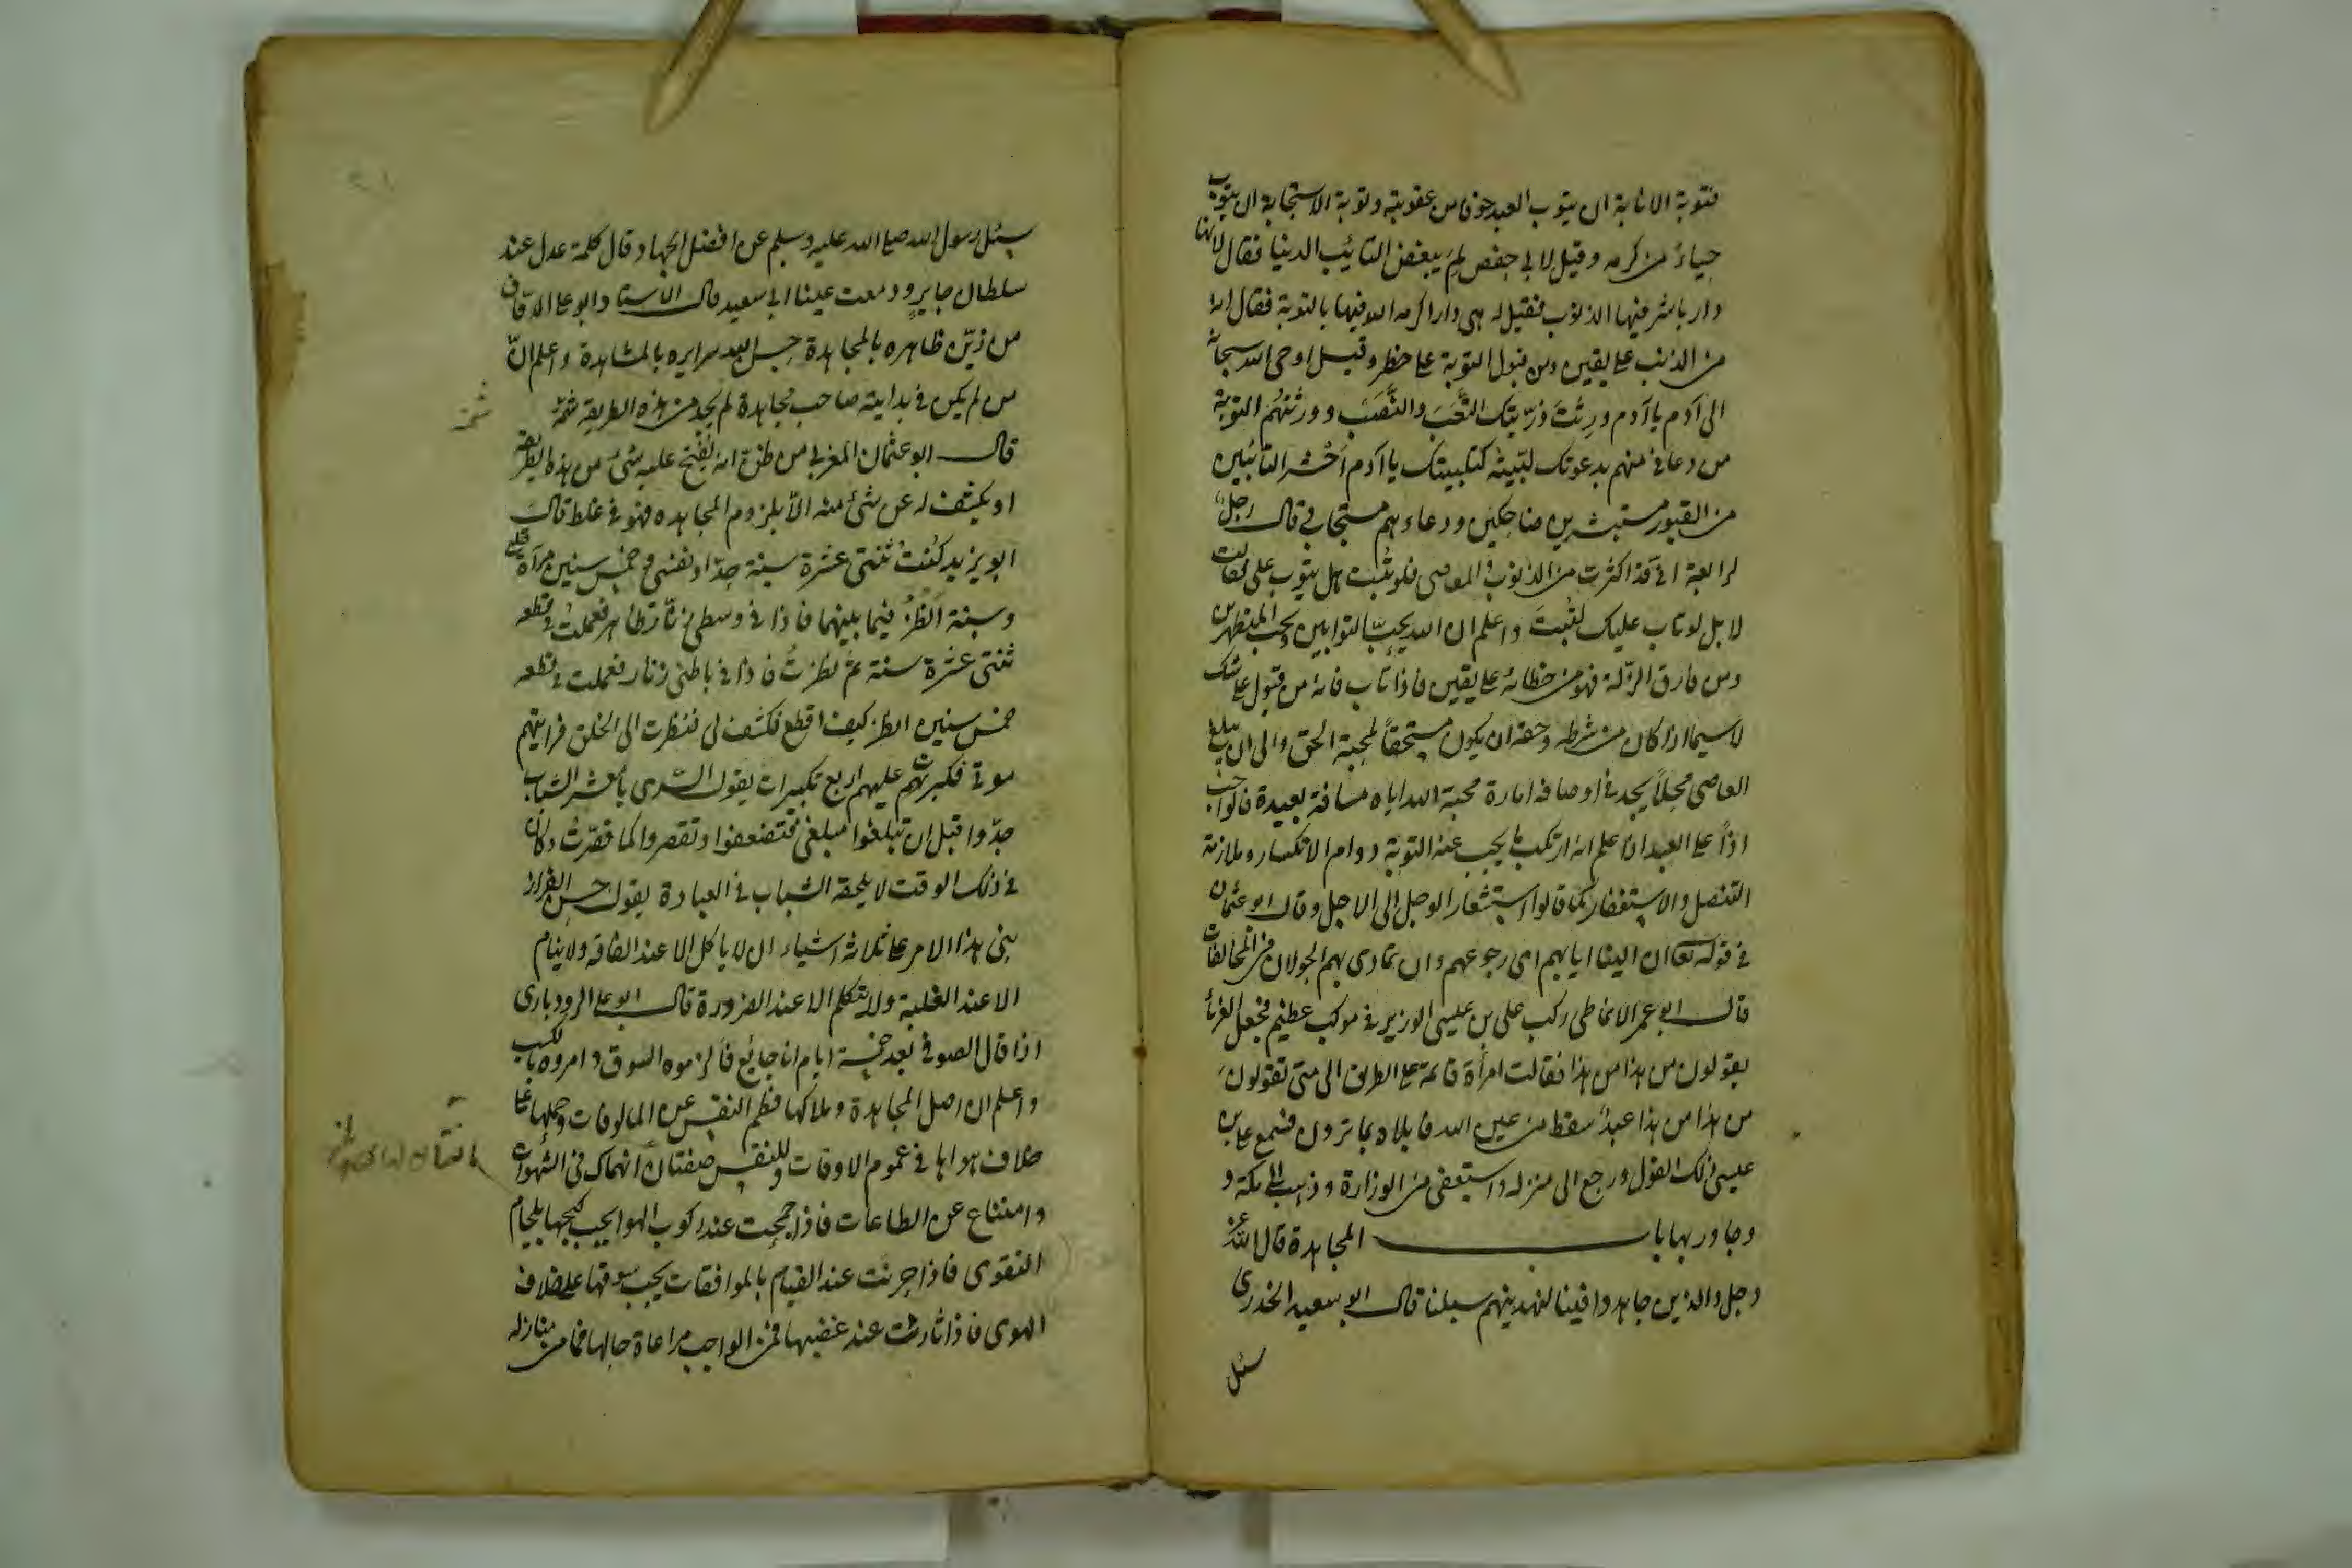 فتوبة الانابة ان يتوب العبد خوفا من عقوبته وتوبة الاستجابة ان يتوب
حياءً من كرمه وقيل لابي حفص لم يبغض التائب الدنيا فقال لانها
دار باشر فيها الذنوب فقيل له هى دار اكرمه الله فيها بالتوبة فقال انه
من الذنب على يقين ومن قبول التوبة على خطر وقيل اوحى الله سبحانه
الى آدم يا آدم ورثت ذريتك التعب والنصب وورثتهم التوبة
من دعانى منهم بدعوتك لبيته كتلبيتك يا آدم احشر التائبين
من القبور مستبشرين ضاحكين ودعاءهم مستجاب قال رجل
لرابعة انى قد اكثرت من الذنوب والمعاصى فلو تبت هل يتوب على فقالت
لا بل لو تاب عليك لتبت واعلم ان الله يحب التوابين ويحب المتطهرين
ومن قارف الزلة فهو من خطائه على يقين فاذا تاب فانه من قبول على شك
لاسيما اذا كان من شرطه وحقه ان يكون مستحقاً لمحبة الحق والى ان يبلغ
العاصى محلاً يجد فى اوصافه امارة محبة الله اياه مسافة بعيدة فالواجب
اذاً على العبد اذا علم انه ارتكب ما يجب عنه التوبة دوام الانكسار وملازمة
التنصل والاستغفار كما قالوا استشعار الوجل الى الاجل وقال ابو عثمان
فى قوله تعا ان الينا ايابهم اى رجوعهم وان تمادى بهم الجولان فى المخالفات
قال ابو عمر الانماطى ركب على بن عيسى الوزير فى موكب عظيم فجعل الغربا
يقولون من هذا من هذا فقالت امرأة قائمة على الطريق الى متى تقولون
من هذا من هذا عبدٌ سقط من عين الله فابلاه بما ترون فسمع على بن
عيسى ذلك القول ورجع الى منزله واستعفى من الوزارة وذهب الى مكة و
وجاور بها باب المجاهدة قال الله عز
وجل والذين جاهدوا فينا لنهدينهم سبلنا قال ابو سعيد الخدرى
سئل
سئل رسول الله صلى الله عليه وسلم عن افضل الجهاد قال كلمة عدل عند
سلطان جاير ودمعت عينا ابى سعيد قال الاستاد ابو على الدقاق
من زين ظاهره بالمجاهدة حسن الله سرايره بالمشاهدة واعلم ان
من لم يكن فى بدايته صاحب مجاهدة لم يجد من هذه الطريقة شمة
قال ابو عثمان المغربى من ظن انه يفتح عليه شئ من هذه الطريقة
او يكشف له عن شئ منه الا بلزوم المجاهده فهو فى غلط قال
ابو يزيد كنت ثنتى عشرة سنة حداد نفسى وخمس سنين مرآة قلبى
وسنة انظر فيما بينهما فاذا فى وسطى زنار ظاهر فعملت فى قطعه
ثنتى عشرة سنة ثم نظرت فاذا فى باطنى زنار فعملت فى قطعه
خمس سنين انظر كيف اقطع فكشف لى فنظرت الى الخلق فرأيتهم
موتى فكبرت عليهم اربع تكبيرات يقول السرى يا معشر الشباب
جدوا قبل ان تبلغوا مبلغى فتضعفوا وتقصروا كما قصرت وكان
فى ذلك الوقت لا يلحقه الشباب فى العبادة يقول حسن القزاز
بنى هذا الامر على ثلاثة اشياء ان لا ياكل الا عند الفاقة ولا ينام
الا عند الغلبة ولا يتكلم الا عند الضرورة قال ابو على الرودبارى
اذا قال الصوفى بعد خمسة ايام انا جائع فالزموه السوق وامروه بالكسب
واعلم ان اصل المجاهدة وملاكها فطم النفس عن المالوفات وحملها على
خلاف هواها فى عموم الاوقات وللنفس صفتان انهماك فى الشهوات
وامتناع عن الطاعات فاذا جمحت عند ركوب الهوا يجب كبحها بلجام
التقوى فاذا حرنت عند القيام بالموافقات يجب سوقها على خلاف
الهوى فاذا ثارت عند غضبها فمن الواجب مراعاة حالها فما من منازلة